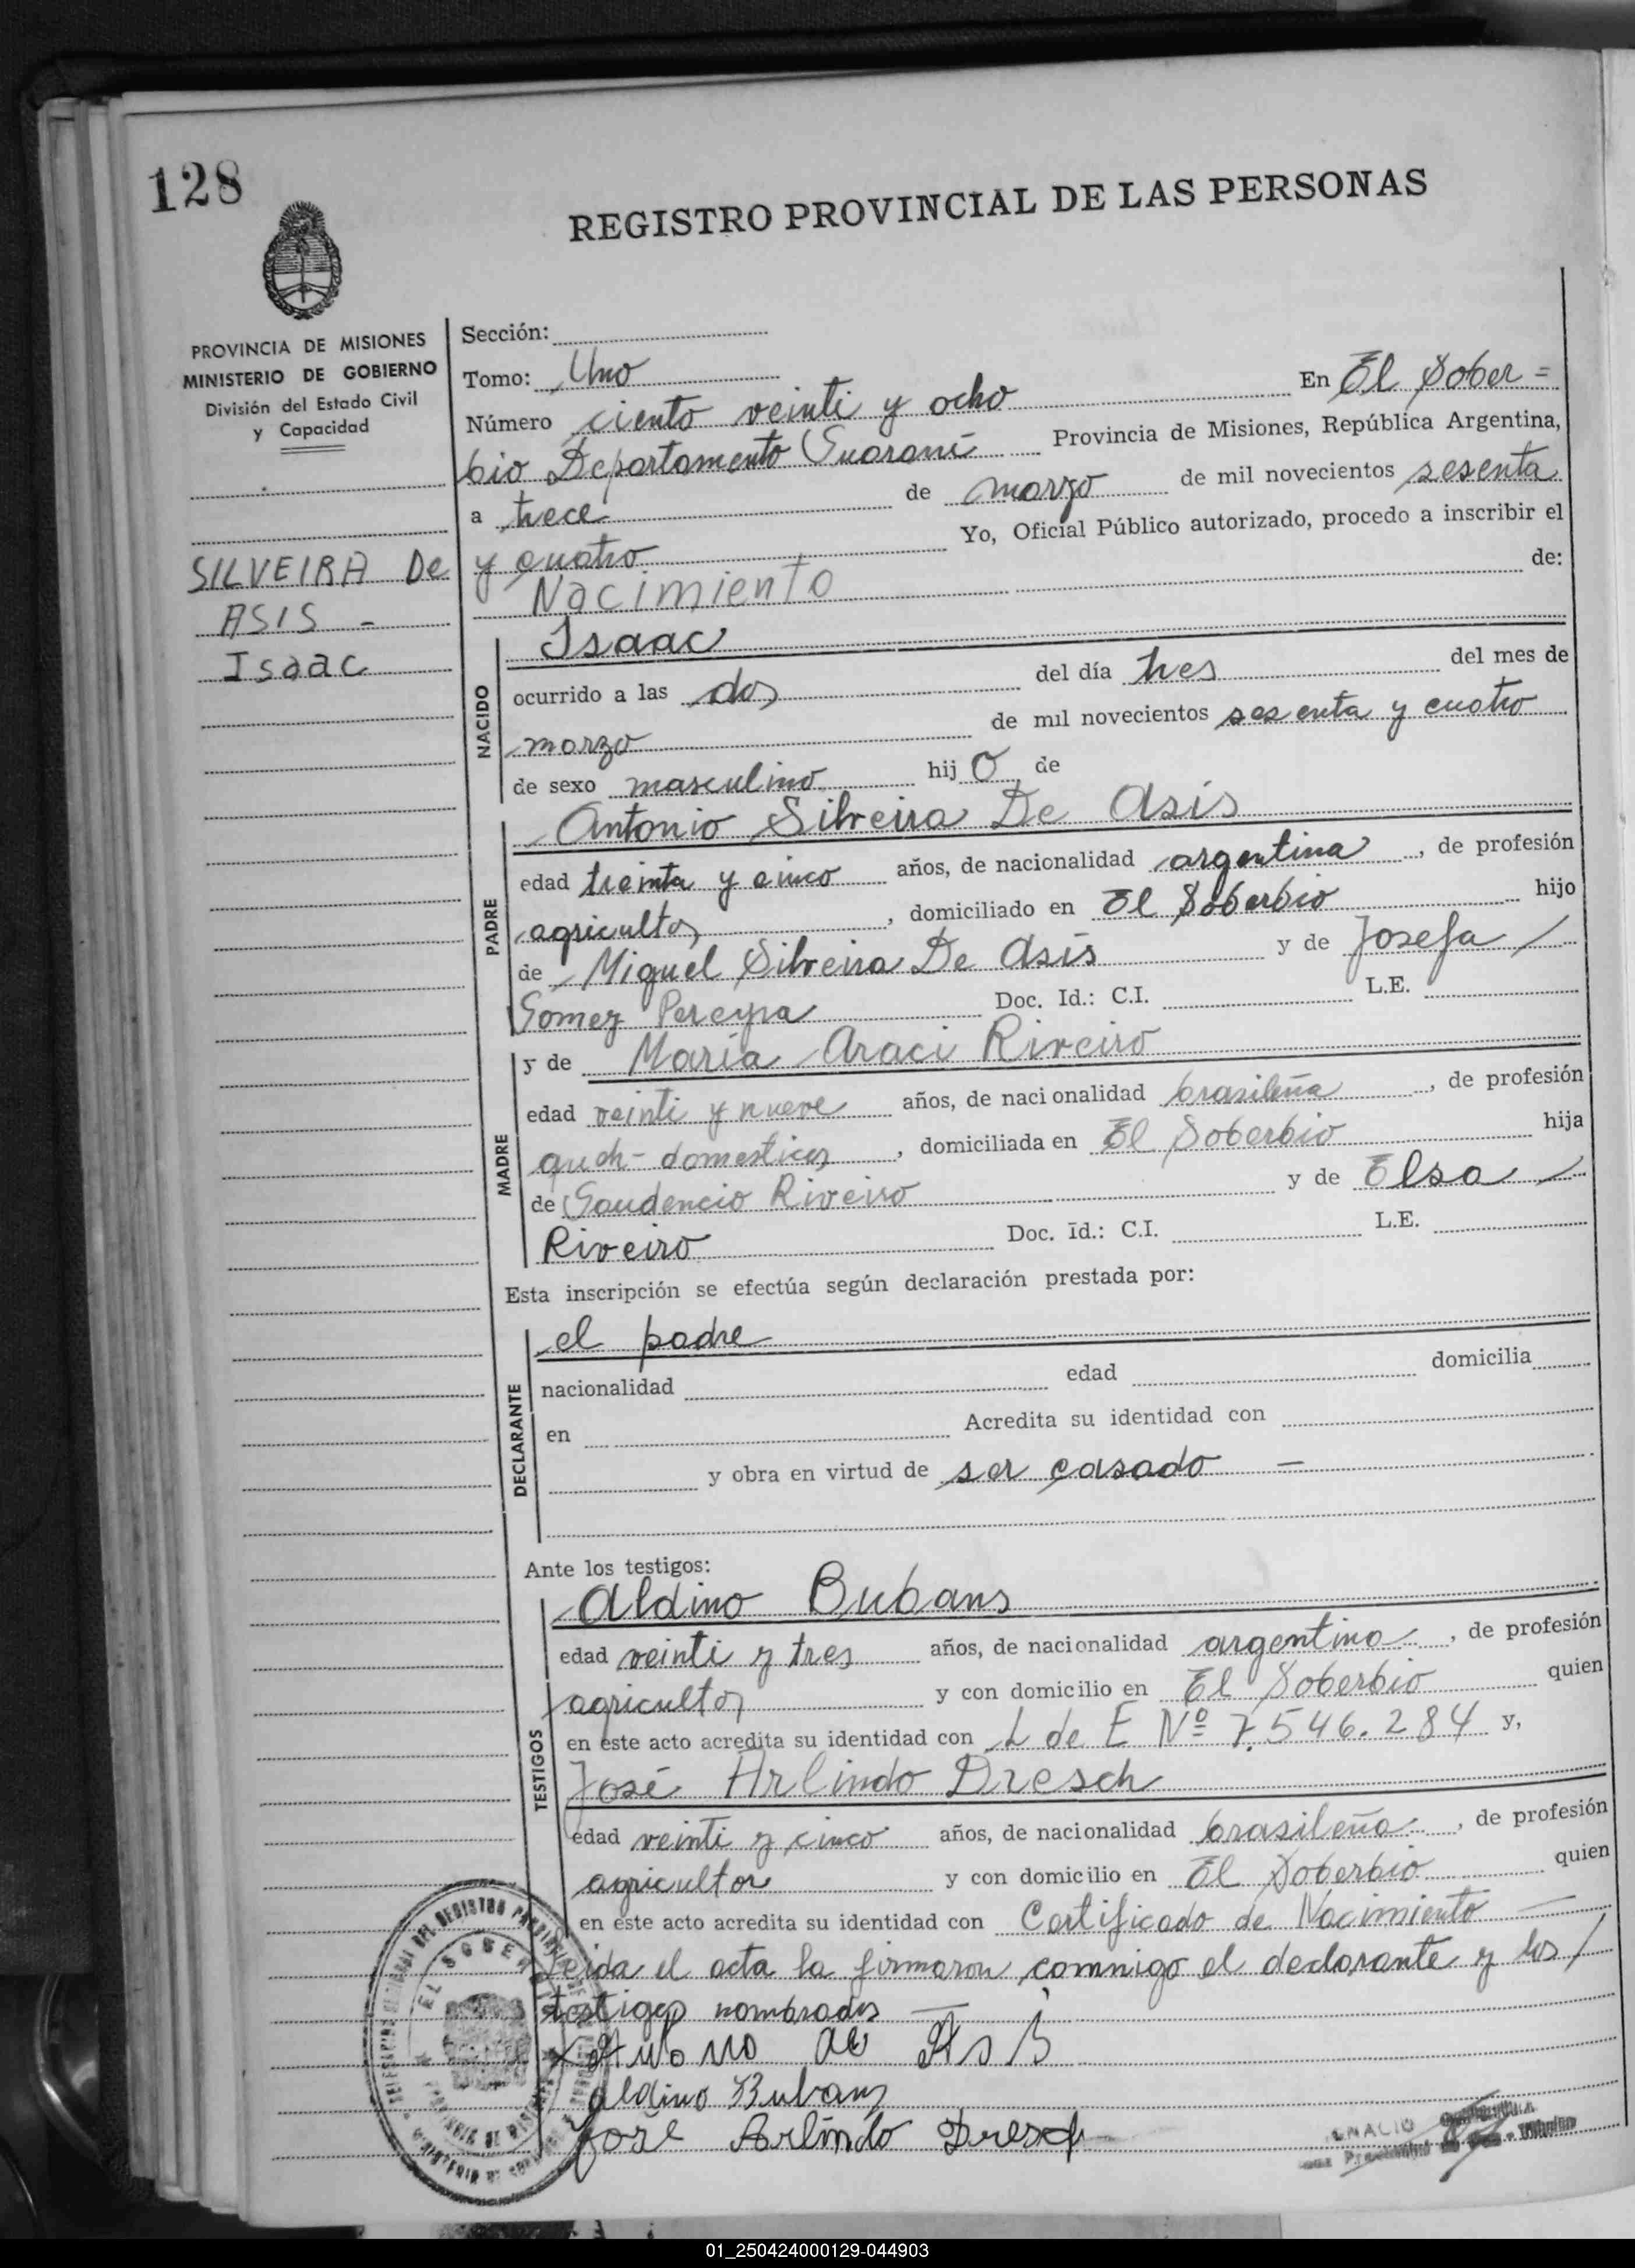 128
REGISTRO PROVINCIAL DE LAS PERSONAS
PROVINCIA DE MISIONES
MINISTERIO DE GOBIERNO
División del Estado Civil
y Capacidad
SILVEIRA De
ASIS -
Isaac
Sección:
Tomo: Uno
Número ciento veinti y ocho En El Sober =
bio Departamento Guaraní Provincia de Misiones, República Argentina,
a trece de marzo de mil novecientos sesenta
y cuatro Yo, Oficial Público autorizado, procedo a inscribir el
Nacimiento de:
NACIDO
Isaac
ocurrido a las dos del día tres del mes de
marzo de mil novecientos sesenta y cuatro
de sexo masculino hijo de
PADRE
Antonio Silveira De Asis
edad treinta y cinco años, de nacionalidad argentina, de profesión
agricultor, domiciliado en El Soberbio hijo
de Miguel Silveira De Asis y de Josefa /
Gomez Pereyra Doc. Id.: C.I. L.E.
MADRE
y de María Araci Riveiro
edad veinti y nueve años, de nacionalidad brasileña, de profesión
queh- domesticos, domiciliada en El Soberbio hija
de Gaudencio Riveiro y de Elsa /
Riveiro Doc. Id.: C.I. L.E.
Esta inscripción se efectúa según declaración prestada por:
DECLARANTE
el padre
nacionalidad edad domicilia
en Acredita su identidad con
y obra en virtud de ser casado —
Ante los testigos:
TESTIGOS
Aldino Bubans
edad veinti y tres años, de nacionalidad argentino, de profesión
agricultor y con domicilio en El Soberbio quien
en este acto acredita su identidad con L de E Nº 7.546.284 y,
José Arlindo Dresch
edad veinti y cinco años, de nacionalidad brasileña, de profesión
agricultor y con domicilio en El Soberbio quien
en este acto acredita su identidad con Certificado de Nacimiento —
Leida el acta la firmaron comnigo el declarante y los /
testigos nombrados —
de Asis
Aldino Bubans
José Arlindo Dresch
01_250424000129-044903